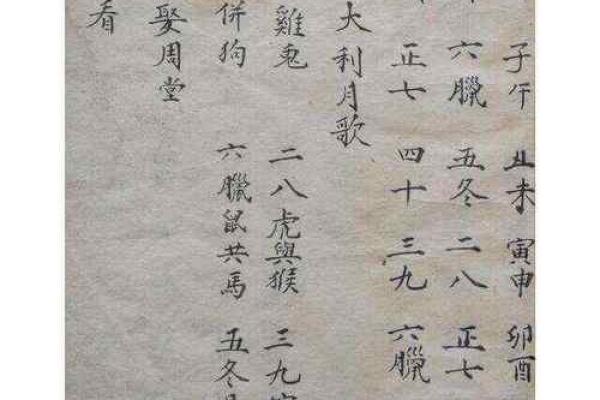 子午 丑未 寅申 卯酉
六臘 五冬 二八 正七
正七 四十 三九 六臘
大利月歌
雞兎 二八虎與猴 三九
併狗 六臘鼠共馬 五冬
娶周堂
看